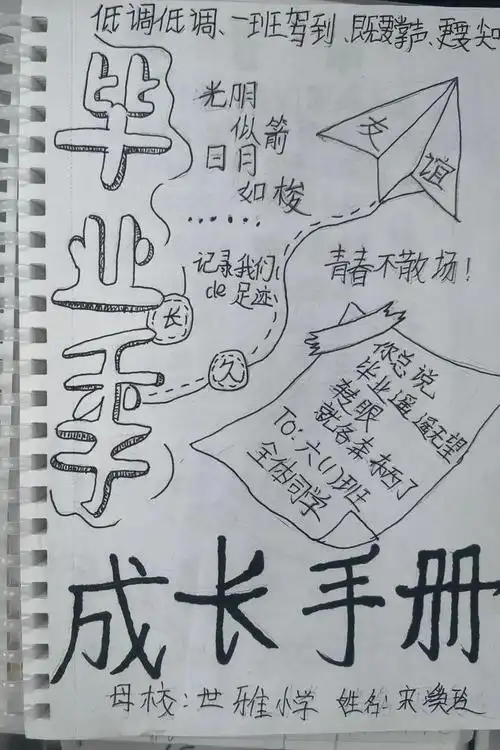 低调低调、一班驾到、既要掌声、更要尖
毕业季
光阴
似箭
日月
如梭
......
记录我们
de足迹
长
久
友谊
青春不散场！
你总说
毕业遥遥无望
转眼
就各奔东西了
To：六（1）班
全体同学
成长手册
母校：世雅小学 姓名：宋焕玲